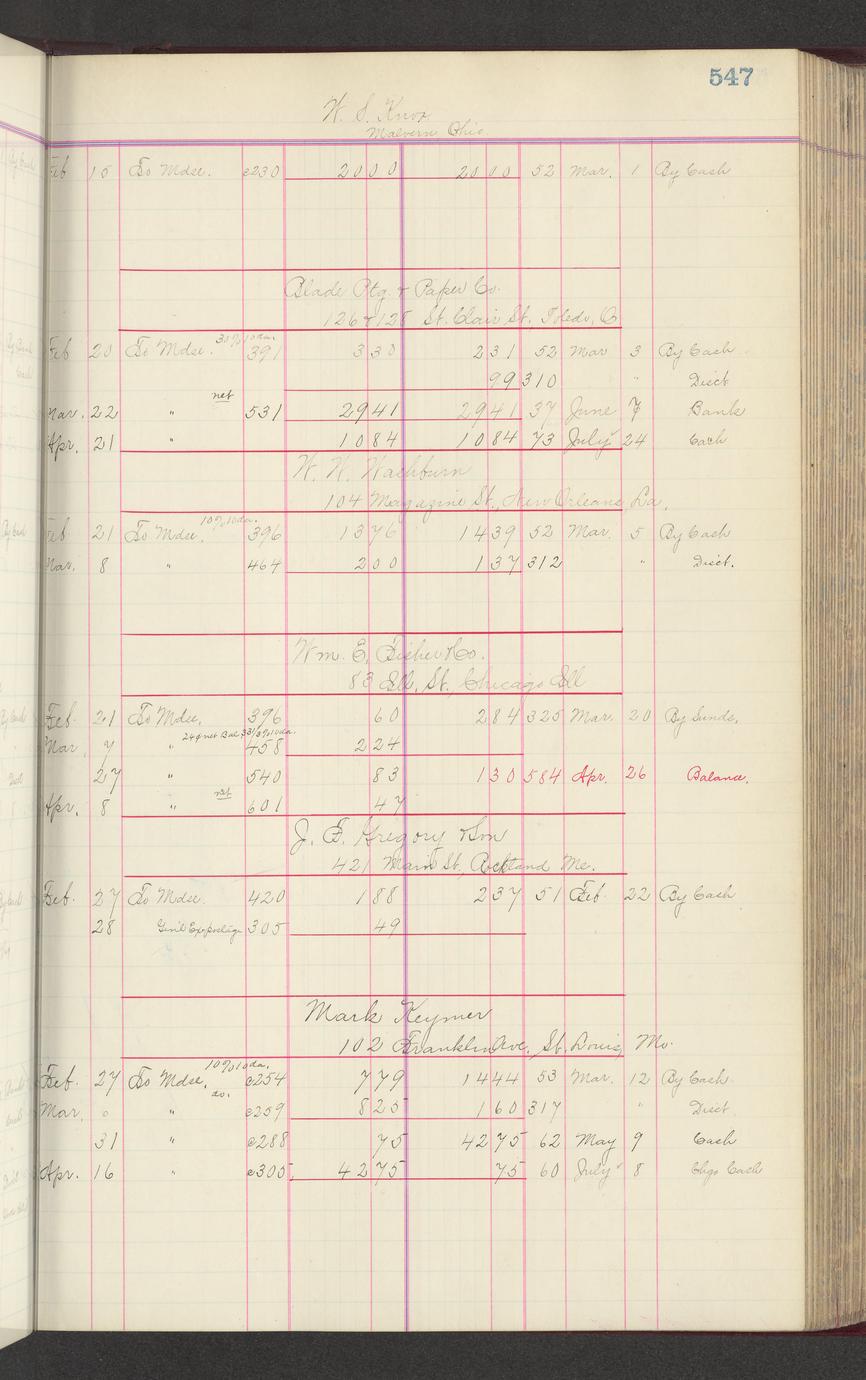 547
W. S. Knox
Malvern Ohio.
Feb 15 To Mdse. c230 2000 2000 52 Mar. 1 By Cash
Blade Ptg. & Paper Co.
126 & 128 St. Clair St. Toledo, O
30% 10 da.
Feb 20 To Mdse. 391 330 231 52 Mar 3 By Cash
99 310 " Disct
net
Mar. 22 " 531 2941 2941 37 June 7 Bank
Apr. 21 " 1084 1084 73 July 24 Cash
W. W. Washburn
104 Magazine St., New Orleans, La.
10% 10 da.
Feb. 21 To Mdse. 396 1376 1439 52 Mar. 5 By Cash
Mar. 8 " 464 200 137 312 " Disct.
Wm. E. Fisher & Co.
83 Ill. St. Chicago Ill
Feb. 21 To Mdse. 396 60 284 325 Mar. 20 By Sunds.
24¢ net Bal 33 1/3% 10 da.
Mar 7 " 458 224
27 " 540 83 130 584 Apr. 26 Balance.
net
Apr. 8 " 601 47
Gregory & Son
421 Main St. Me.
Feb. 27 To Mdse. 420 188 237 51 Feb 22 By Cash
28 Gen'l Exp postage 305 49
Mark Keymer
102 Franklin Ave. St. Louis, Mo.
10% 10 da.
Feb. 27 To Mdse. c254 779 1444 53 Mar. 12 By Cash
do.
Mar. " c259 825 160 317 " Disct.
31 " c288 75 4275 62 May 9 Cash
Apr. 16 " c305 4275 75 60 July 8 Chgo Cash